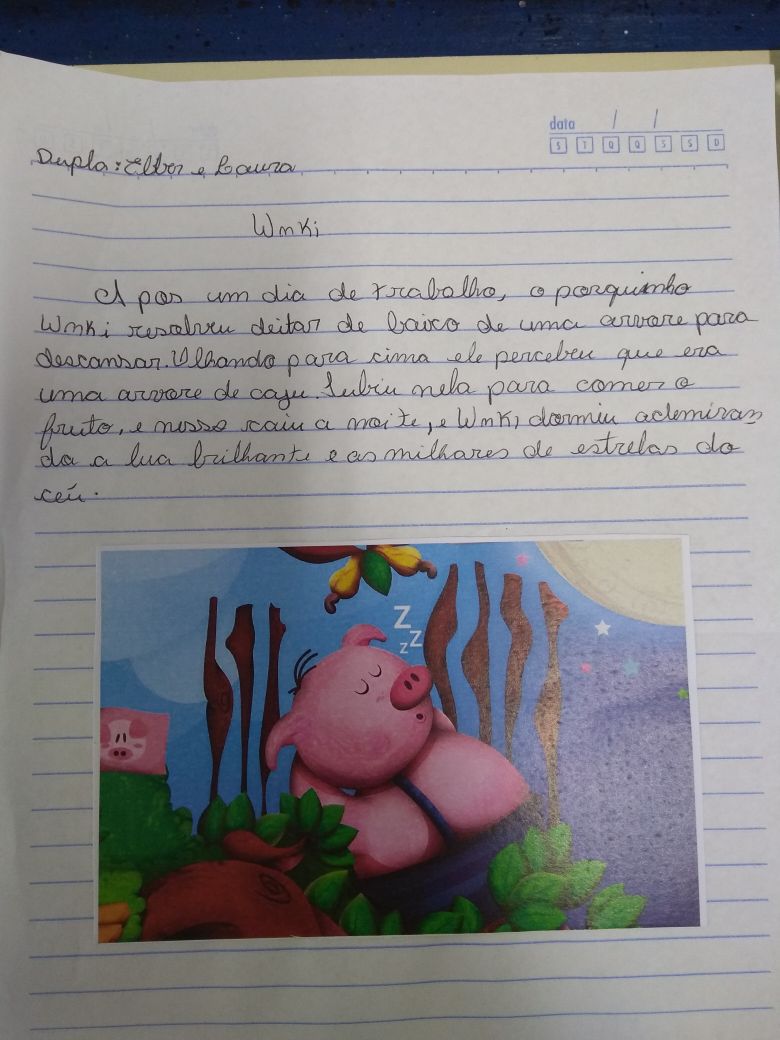 data / /
S T Q Q S S D
Dupla: Elber e Laura
Wmki
A pos um dia de trabalho, o porquinho
Wmki resolveu deitar de baixo de uma arvore para
descansar. Olhando para cima ele percebeu que era
uma arvore de caju. Subiu nela para comer o
fruto, e nisso caiu a noite, e Wmki dormiu ademiran
do a lua brilhante e as milhares de estrelas do
céu.
Z
Z
Z